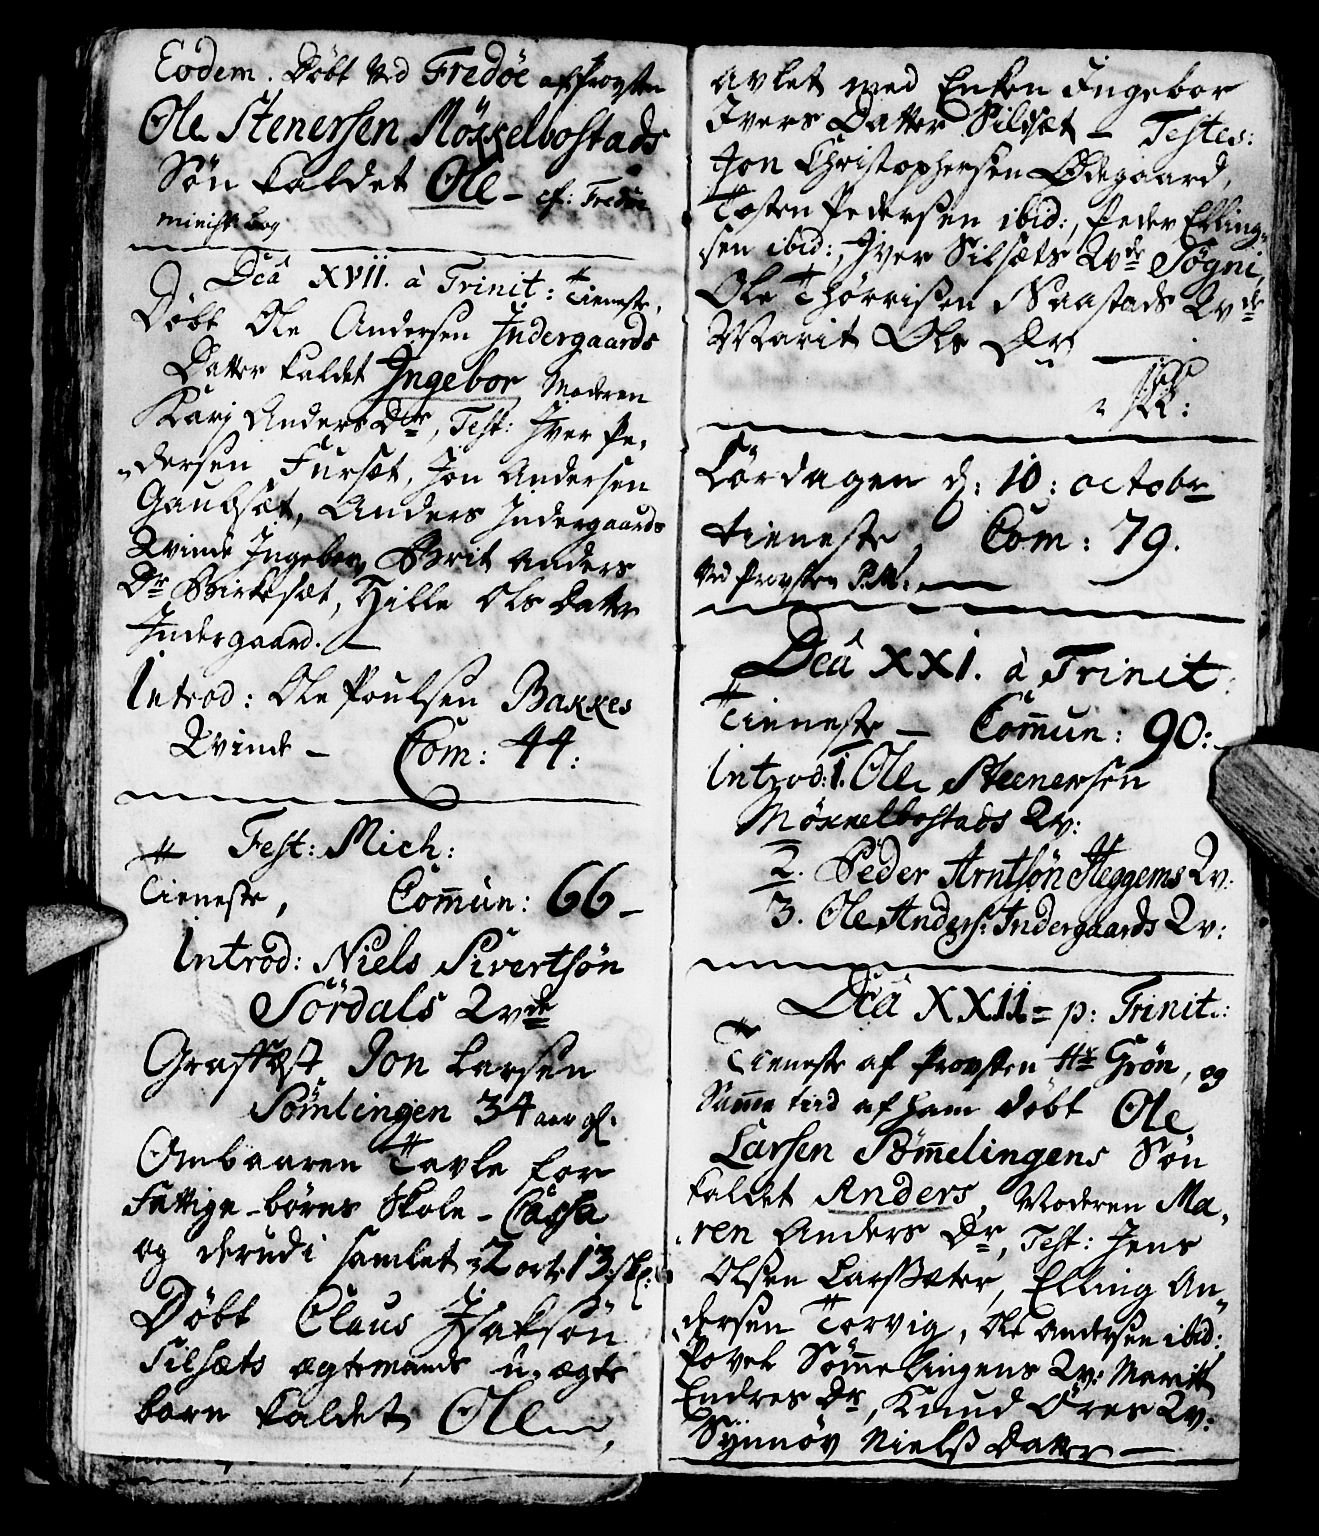 Eodem. Döbt ved Fredöe af Provsten
Ole Stenersen Möxxelbostads
Sön kaldet Ole – cf: Fredöe
minist. bog
Dca XVII. à Trinit: Tieneste,
Döbt Ole Andersen Indergaards
Datter kaldet Ingebor Moderen
Kari Anders Dtr, Test: Iver Pe-
dersen Fursæt, Jon Andersen
Gaudset, Anders Indergaards
Qvinde Ingebor, Brit Anders
Dr Birkesæt, Hille Ols Datter
Indergaard. –
Introd: Ole Poulsen Baxxes
Qvinde – Com: 44:
Fest: Mich:
Tieneste, Com̃un: 66 –
Introd: Niels Sivertsön
Sördals Qvde
Graffæst Jon Larsen
Sömlingen 34 aar gl.
Ombaaren Tavle for
Fattige-börns Skole-Cassa
og derudi samlet 2 ort 13 sk:
Döbt Claus Isaksön
Silsæts ægtemands u-ægte
barn kaldet Ole,
avlet med Enken Ingebor
Ivers Datter Silsæt – Testes:
Jon Christophersen Ødegaard,
Tosten Pedersen ibid:, Peder Elling-
sen ibid:, Iver Silsæts Qvde Sögni,
Ole Thörrisen Naastads Qvde
Marit Ols Dr
Lördagen d: 10: octobr
tieneste, Com: 79.
ved Provsten
Dca XXI. à Trinit:
Tieneste – Com̃un: 90: –
Introd: 1. Ole Steenersen
Möxxelbostads Qv:
2. Peder Arntsön Heggems Qv:
3. Ole Anders: Indergaards Qv:
Dca XXII = p: Trinit:
Tieneste af Provsten Hr Grön, og
Sam̃e tiid af ham döbt Ole
Larsen Söm̃elingens Sön
kaldet Anders, Moderen Ma-
ren Anders Dr, Test: Jens
Olsen Larssæter, Elling An-
dersen Torvig, Ole Andersen ibid:,
Povel Söm̃elingens Qv: Meritt
Endres Dr, Knud Öres Qv:
Synnöv Nielss Datter –